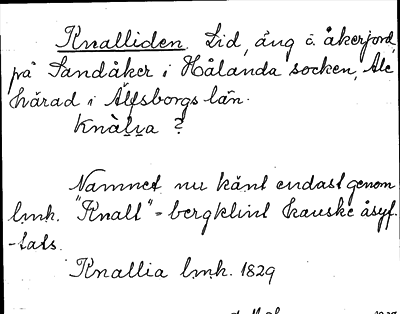 Knalliden. Lid, äng o. åkerjord,
på Sandåker i Hålanda socken, Ale
härad i Älfsborgs län.
Knàlıa ?
Namnet nu känt endast genom
lmk. "Knall" = bergklint kanske åsyf-
-tats.
Knallia lmk. 1829